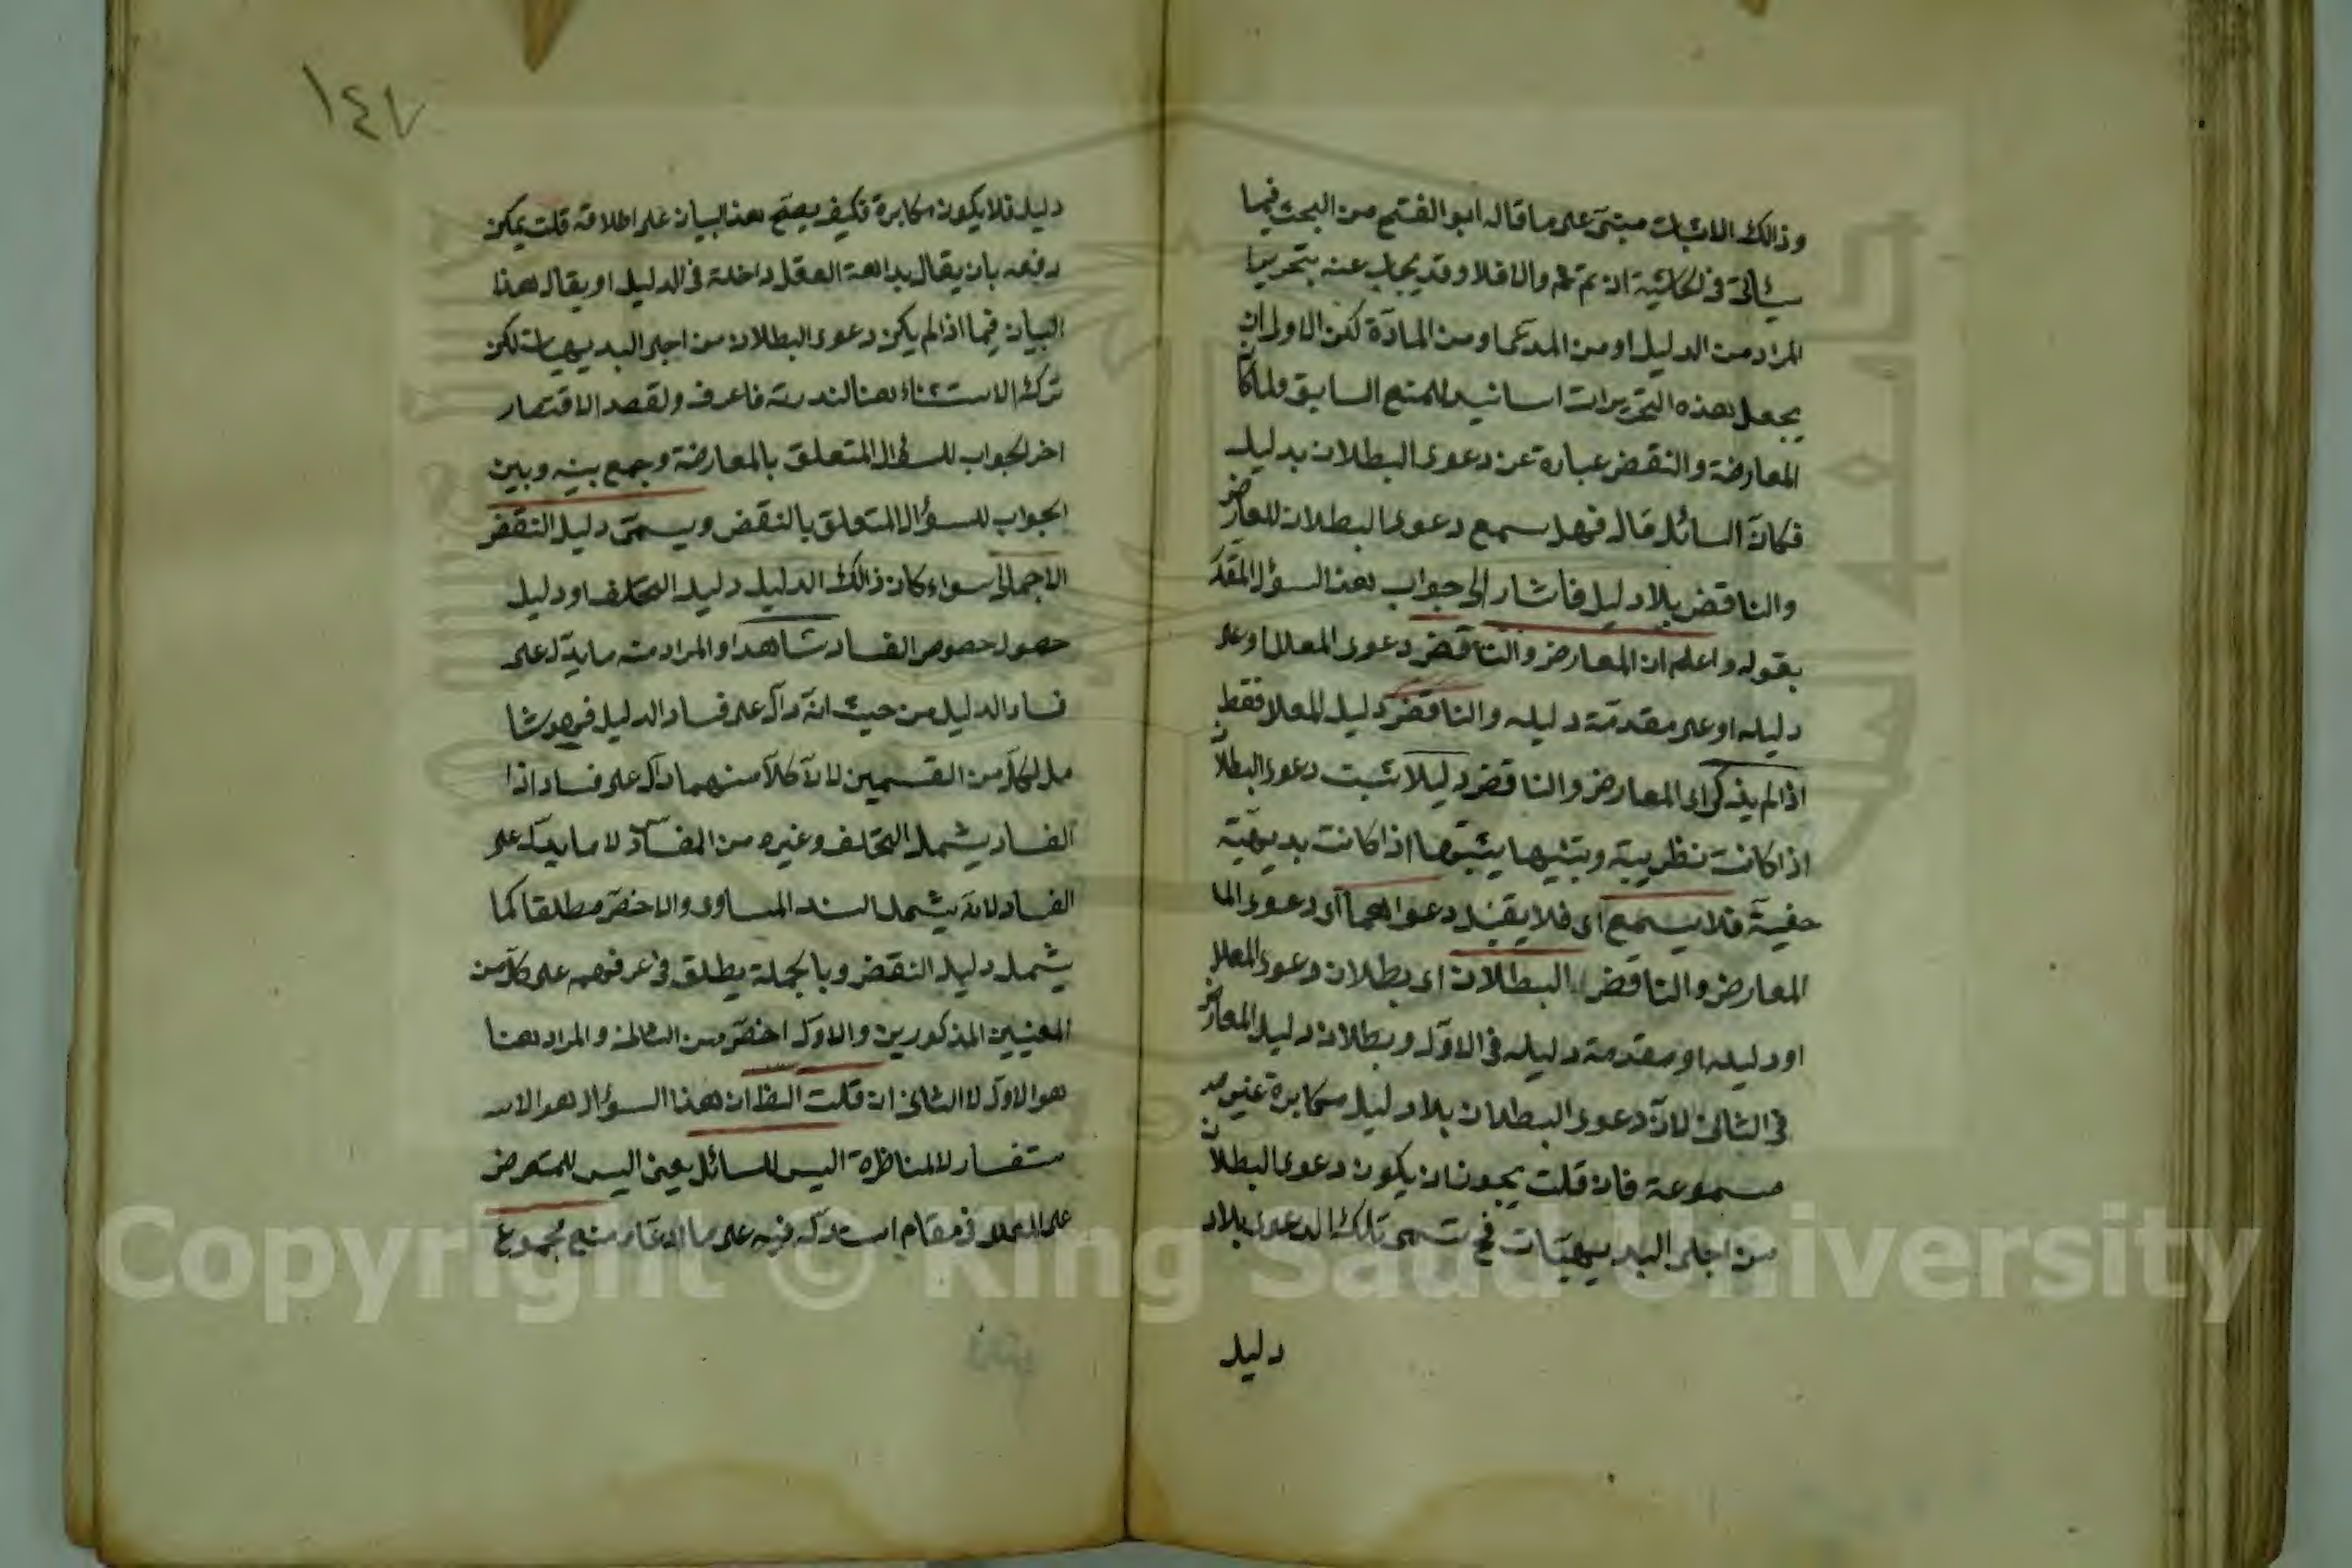 وذالك الاثبات مبنى على ما قاله ابو الفتح من البحث فيما
سيأتى فى الحاشية ان تم تم والا فلا وقد يجاب عنه بتحرير ما
المراد من الدليل او من المدعى او من المادة لكن الاولى ان
يجعل هذه التحريرات اسانيد للمنع السابق ولما كا
المعارضة والنقض عبارة عن دعوى البطلان بدليل
فكان السائل قال فهل سمع دعوى البطلان للمعارض
والناقض بلا دليل فاشار الى جواب هذا السؤال المقد
بقوله واعلم ان المعارض والناقض دعوى المعلل او على
دليله او على مقدمة دليله والناقض دليل المعلل فقط
اذا لم يذكر اى المعارض والناقض دليلا يثبت دعوى البطلان
اذا كانت نظرية وتنبيها يثبتها اذا كانت بديهية
خفية فلا يسمع اى فلا يقبل دعواهما اى دعوى الما
المعارض والناقض البطلان اى بطلان دعوى المعلل
او دليله او مقدمة دليله فى الاول وبطلان دليل المعارض
فى الثانى لان دعوى البطلان بلا دليل مكابرة غير مسـ
مسموعة فان قلت يجوز ان يكون دعوى البطلان
من اجلى البديهيات فح تسمى تلك الدعوى بلاد
دليل
١٤٧
دليل فلا يكون مكابرة فكيف يصح هذا البيان على اطلاقه قلت يمكن
دفعه بان يقال بداهة العقل داخلة فى الدليل او يقال هذا
البيان فيما اذا لم يكن دعوى البطلان من اجلى البديهيات لكن
ترك الاستثناء هنا لندرته فاعرف ولقصد الاقتصار
اخر الجواب للسؤال المتعلق بالمعارضة وجمع بينه وبين
الجواب للسؤال المتعلق بالنقض ويسمى دليل النقض
الاجمالى سواء كان ذالك الدليل دليل التخلف او دليل
حصول خصوص الفساد شاهدا والمراد منه ما يدل على
فساد الدليل من حيث انه دال على فساد الدليل فهو شا
مل لكل من القسمين لان كلا منهما دال على فساد اذا
الفساد يشمل التخلف وغيره من المفاسد لا ما يدل على
الفساد لانه يشمل السند المساوى والاخص مطلقا كما
يشمل دليل النقض وبالجملة يطلق فى عرفهم على كل من
المعنيين المذكورين والاول اخص من الثانى والمراد هنا
هو الاول لا الثانى ان قلت الظ ان هذا السؤال هو الاسـ
ستفسار لا المناظرة اليس للسائل يعنى اليس للمتعرض
على المعلل فى مقام استدلاله فيه على ما ادعاه منع مجموع